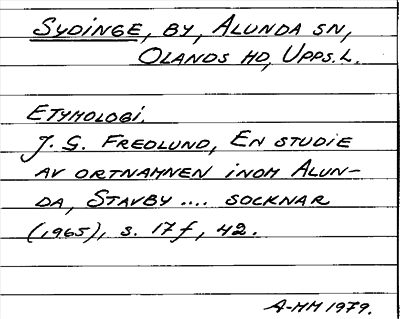 Sydinge, by, Alunda sn,
Olands hd, Upps.l.
Etymologi.
J. G. Fredlund, En studie
av ortnamnen inom Alun-
da, Stavby .... socknar
(1965), s. 17f, 42.
A-MM 1979.